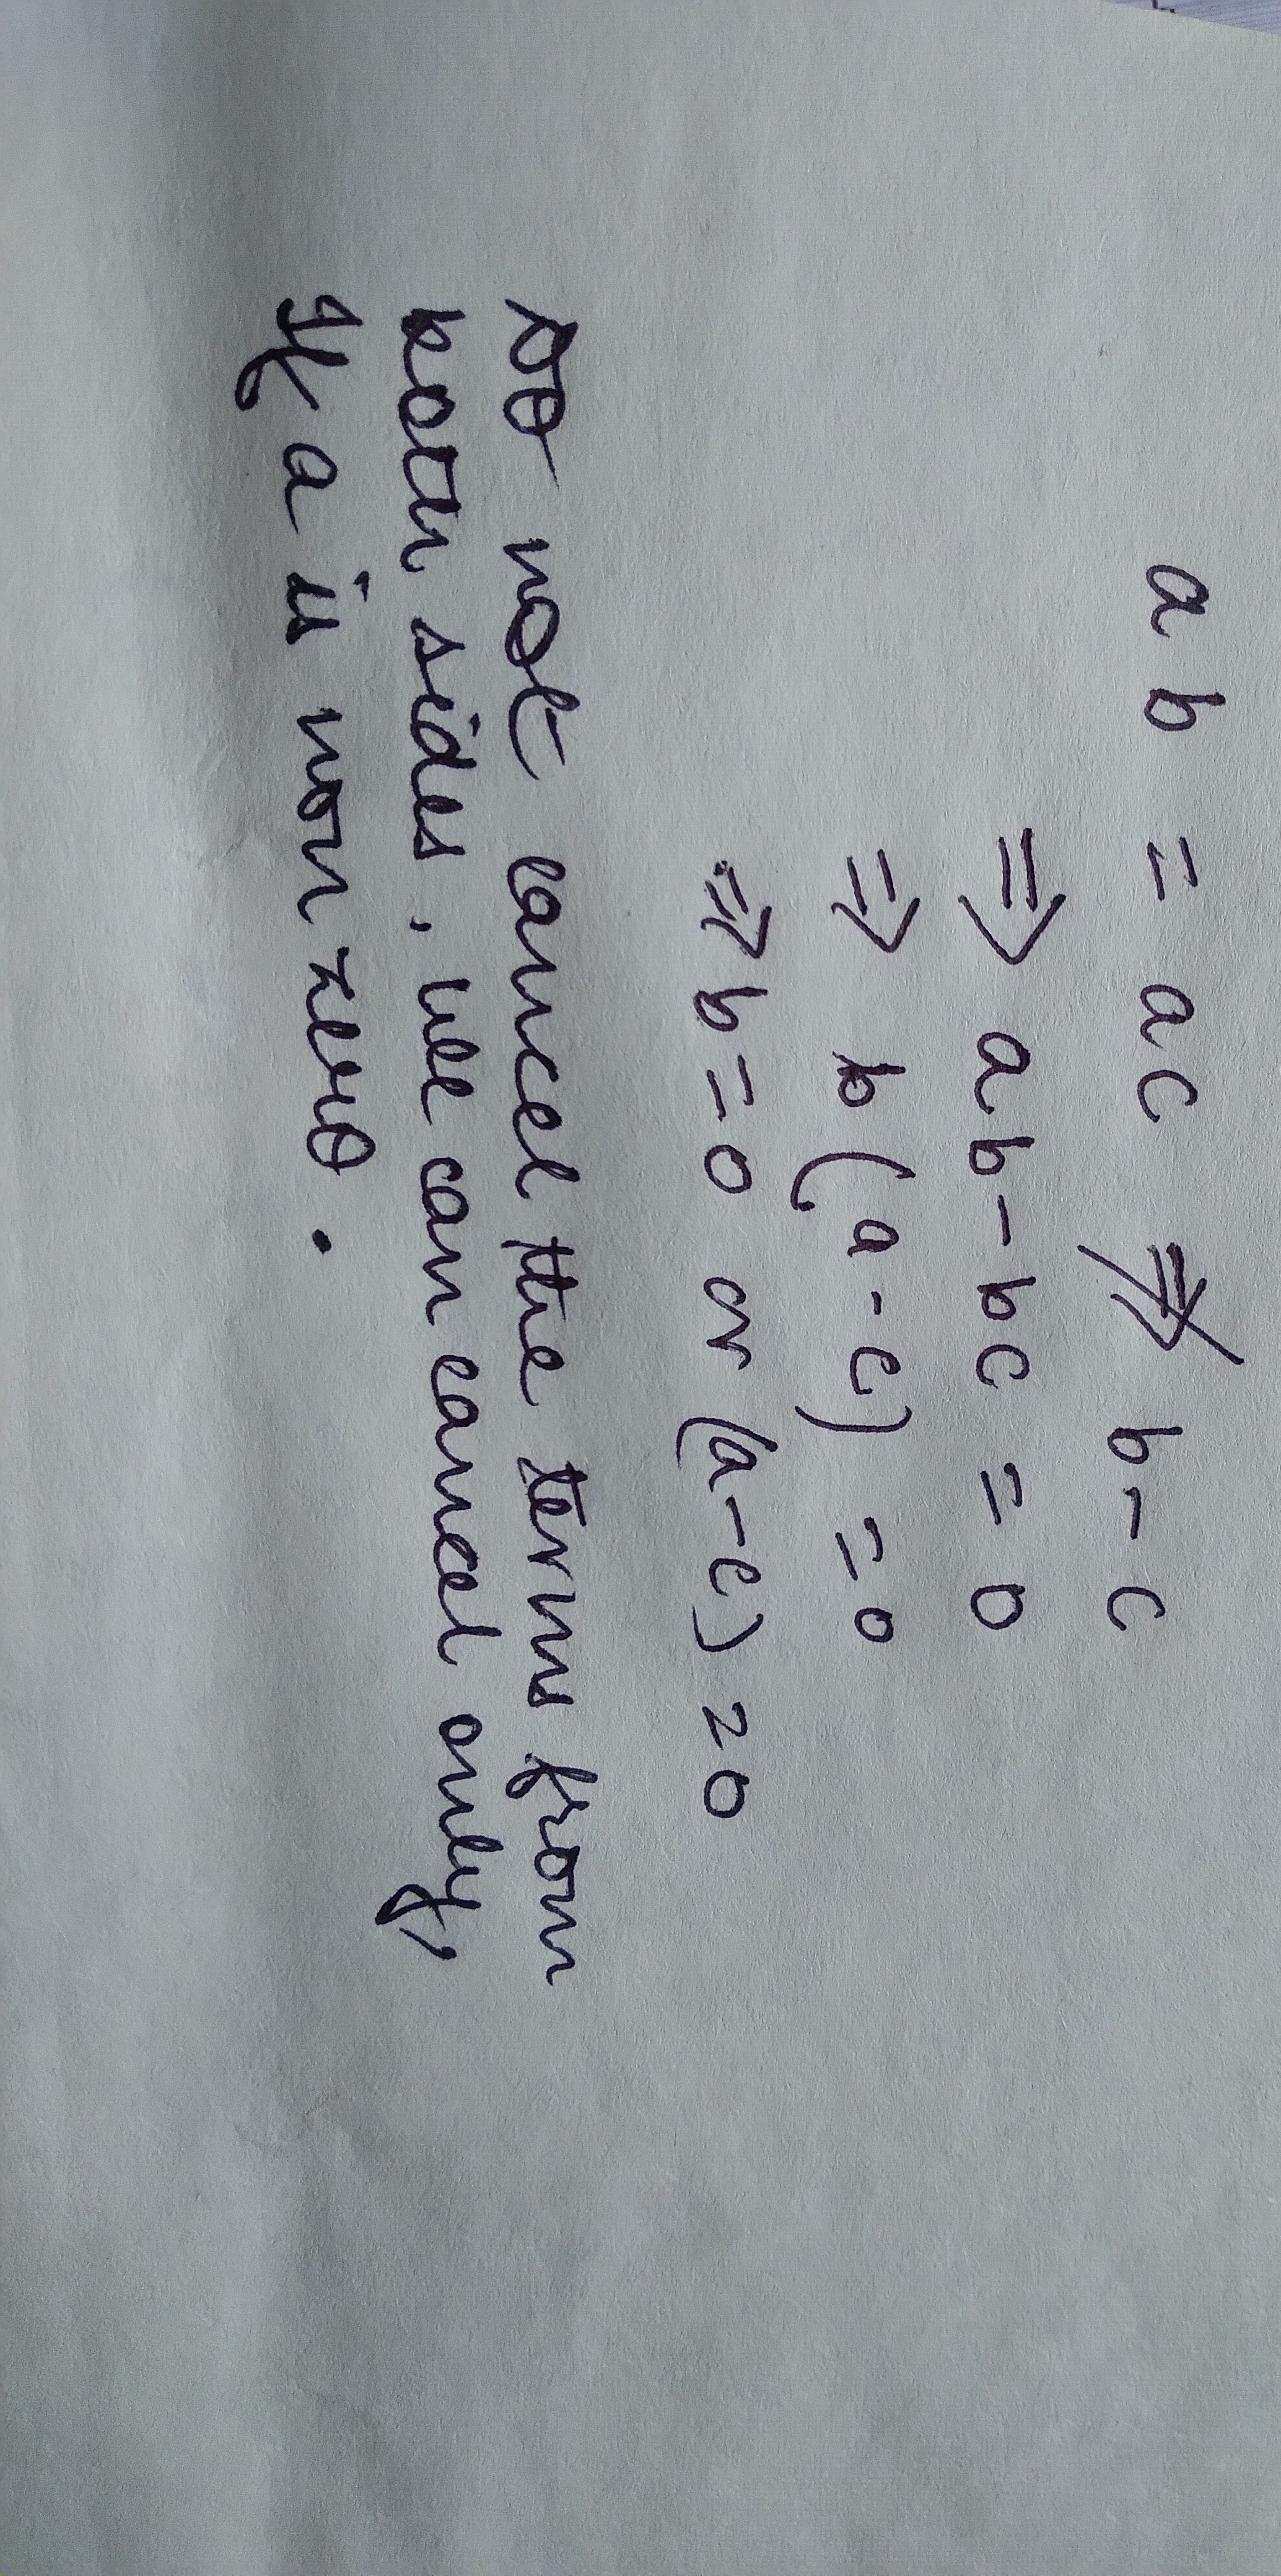 ab = ac ⇏ b - c
⇒ ab - bc = 0
⇒ b(a-c) = 0
⇒ b = 0 or (a-c) = 0
Do not cancel the terms from
both sides, we can cancel only,
If a is non zero.